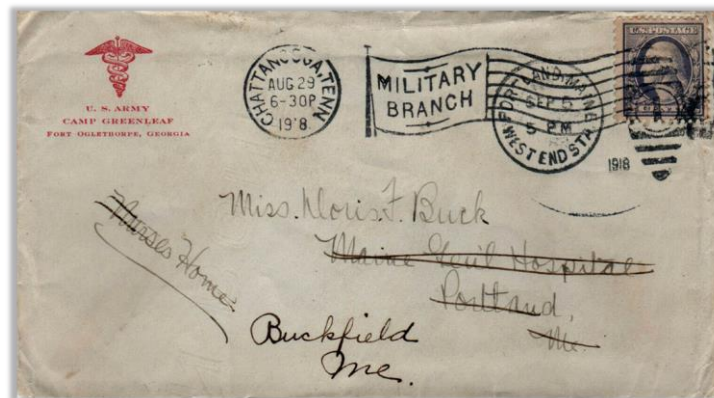 U. S. ARMY
CAMP GREENLEAF
FORT OGLETHORPE, GEORGIA
CHATTANOOGA, TENN
AUG 29
6-30P
1918
MILITARY
BRANCH
PORTLAND, MAINE
SEP 5
5 PM
WEST END STA.
1918
U.S. POSTAGE
Miss. Doris. F. Buck
Maine Gen'l Hospital
Portland,
Me.
Nurses Home
Buckfield
Me.